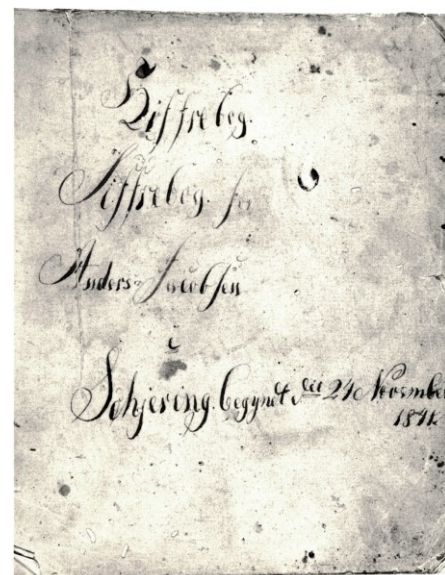 Siffrebog.
Siffrebog. for
Anders Jacobsen
i
Schjering. begyndt den 24 November
1841